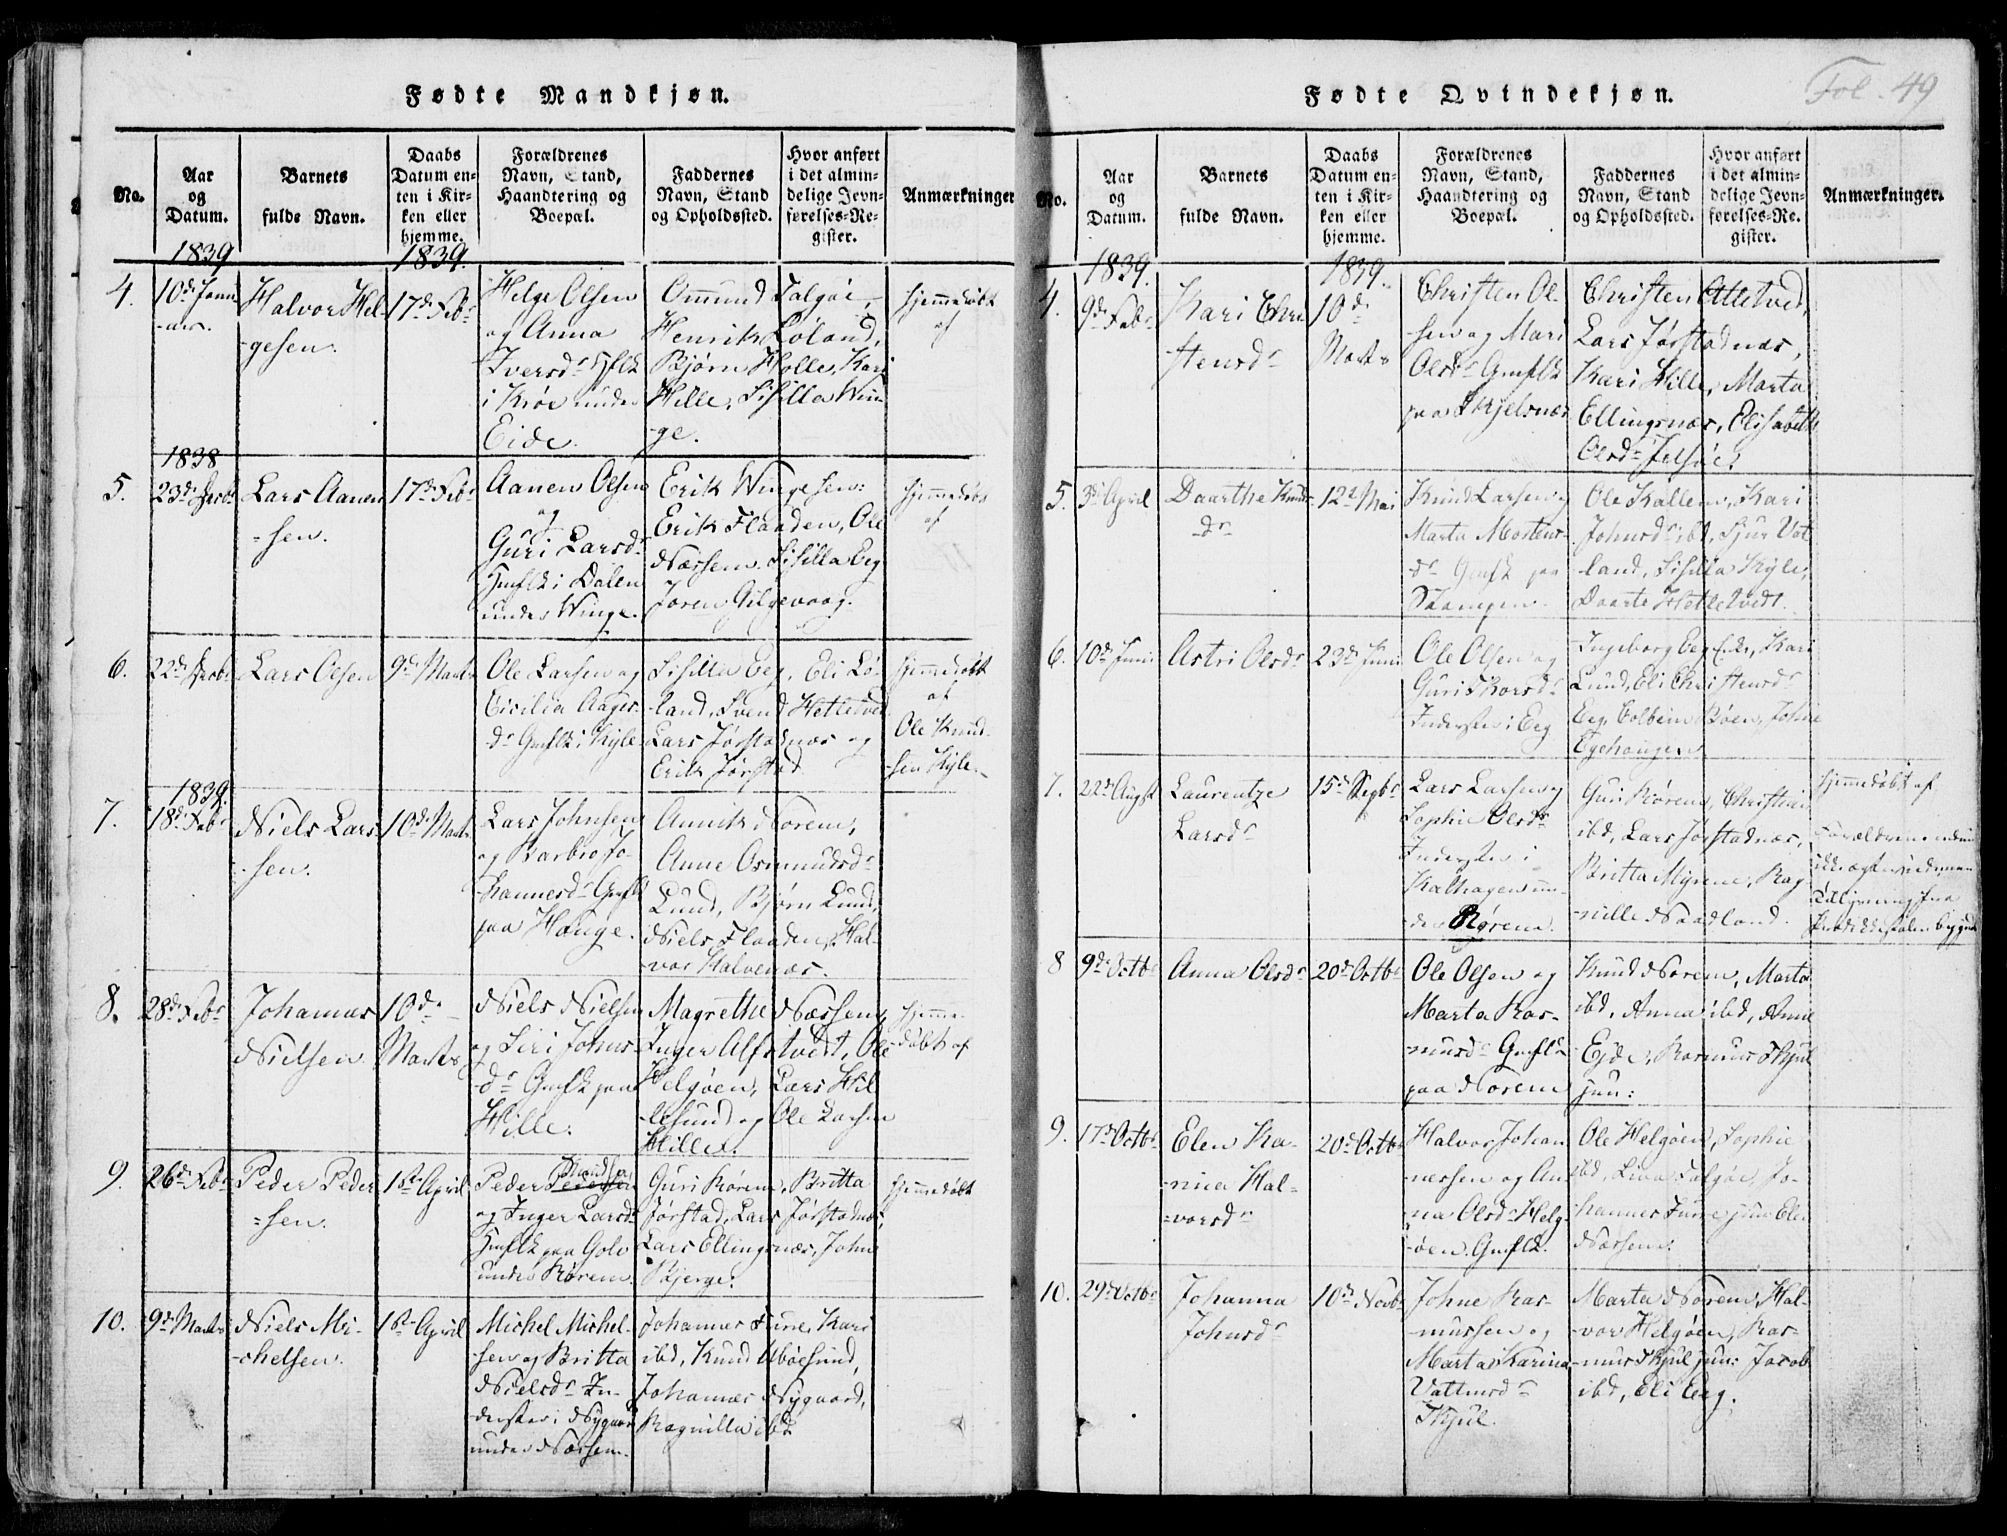 Fødte Mandkjøn.
No.
Aar
og
Datum.
Barnets
fulde Navn.
Daabs
Datum en-
ten i Kir-
ken eller
hjemme.
Forældrenes
Navn, Stand,
Haandtering og
Boepæl.
Faddernes
Navn, Stand
og Opholdssted.
Hvor anført
i det almin-
delige Jevn-
førelses-Re-
gister.
Anmærkninger
1839
1839.
4.
10de Janu
-ar.
Halvor Hel-
-gesen.
17de Febr
Helge Olsen
og Anna
Iversdr
i Krøe under
Eide.
Omund Talgøe,
Henrik Løland,
Bjørn Holle, Kari
Hille, Sisilla Win
-ge.
Hjemmedøbt
af
1838
5.
23de
Lars Aanen
-sen.
17de Febr
Aanen Olsen
og
Guri Larsdr
i Dalen
under Winge.
Erik Winge sen:
Erik Flaaden, Ole
Næssen. Sisilla Eeg
Joren Gilgevaag.
Hjemmedøbt
af
6.
22de
Lars Olsen
9de Marts
Ole Larsen og
Cicilia Aagers-
dr i Kyle
Sisilla Eeg, Eli Lø-
land, Svend Hetletved
Lars Jørstadnæs og
Erik Jørstad
Hjemmedøbt
af
Ole Knud-
-sen Kyle.
1839.
7.
18de Febr
Niels Lars
-sen.
10de Marts
Lars Johnsen
og Barbro Jo-
hannesdr
paa Hauge.
Annik Norem,
Anne Osmundsdr
Lund, Bjørn Lund,
Niels Flaaden, Hal-
vor Halvenæs.
8.
28de Febr
Johannes
Nielsen
10de
Marts
Niels Nielsen
og Siri Johns-
dr paa
Hille.
Magrethe Næssen,
Inger Alfstvedt, Ole
Helgøen, Lars Hil
-lesund og Ole Larsen
Hille.
Hjemme-
døbt af
9.
26de Febr
Peder Peder
-sen.
1ste April
Peder
og Inger Larsdr
paa Golv
under Rørem.
Guri Rørem, Britta
Jørstad, Lars Jørstadnæs,
Lars Ellingsnæs, John
Bjerge.
Hjemmedøbt
10.
9de Marts
Niels Mi-
-chelsen.
1ste April
Michel Michel-
-sen og Britta
Nielsdr In-
derster i Nygaard
under Næssen.
Johannes Furre, Kari
ibd, Knud Ubøesund,
Johannes Nygaard,
Ragnilla ibd
Fødte Qvindekjøn.
Fol. 49
No.
Aar
og
Datum.
Barnets
fulde Navn.
Daabs
Datum en-
ten i Kir-
ken eller
hjemme.
Forældrenes
Navn, Stand,
Haandtering og
Boepæl.
Faddernes
Navn, Stand
og Opholdssted.
Hvor anført
i det almin-
delige Jevn-
førelses-Re-
gister.
Anmærkninger.
1839.
1839.
4.
9de Febr
Kari Chri
stensdr
10de
Marts
Christen Ol-
sen og Mari
Olsdr
paa Skjelsnæs
Christen Atletved,
Lars Jørstadnæs,
Kari Hille, Marta
Ellingsnæs, Elisabeth
Olsdr Jelsøe.
5.
3de April
Daarthe Knuds
-dr
12te Mai
Knud Larsen og
Marta Mortens-
dr paa
Stampen.
Ole Kallem, Kari
Johnsdr ibd, Sjur Vat
land, Sisilla Kyle,
Daarte Hetletvedt.
6.
10de Juni
Astri Olsdr
23de Juni
Ole Olsen og
Guri Thorsdr
Inderster i Eeg
Ingeborg Eeg, Kari
Lund, Eli Christensdr
Eeg, Colbein Bøen, John
Egehaugen
7.
22de August
Laurentze
Larsdr
15de Septbr
Lars Larsen og
Sophie Olsdr
Inderster i
Kalhagen un-
-der Rørem.
Guri Rørem, Christian
ibd, Lars Jørstadnæs,
Britta Myrene, Rag
-nille Naadland.
Hjemmedøbt af
8
9de Octbr
Anna Olsdr
20de Octbr
Ole Olsen og
Marta Ras-
-musdr
paa Norem
Knud Norem, Marta
ibd, Anna ibd, Anne
Ejde, Rasmus Skjul
jun:
9.
17de Octbr
Elen Ka-
-rina Hal-
-vorsdr
20de Octbr
Halvor Johan
nessen og An-
na Olsdr Helg-
øen.
Ole Helgøen, Sophie
ibd, Liva Talgøe, Jo-
hannes Furre jun Elen
Næssen.
10.
29de Octbr
Johanna
Johnsdr
10de Novbr
Johne Ras-
mussen og
Marta Karina
Valtinsdr
Skjul.
Marta Norem, Hal-
vor Helgøen, Ras-
-mus Skjul jun: Jacob
ibd, Eli Eeg.